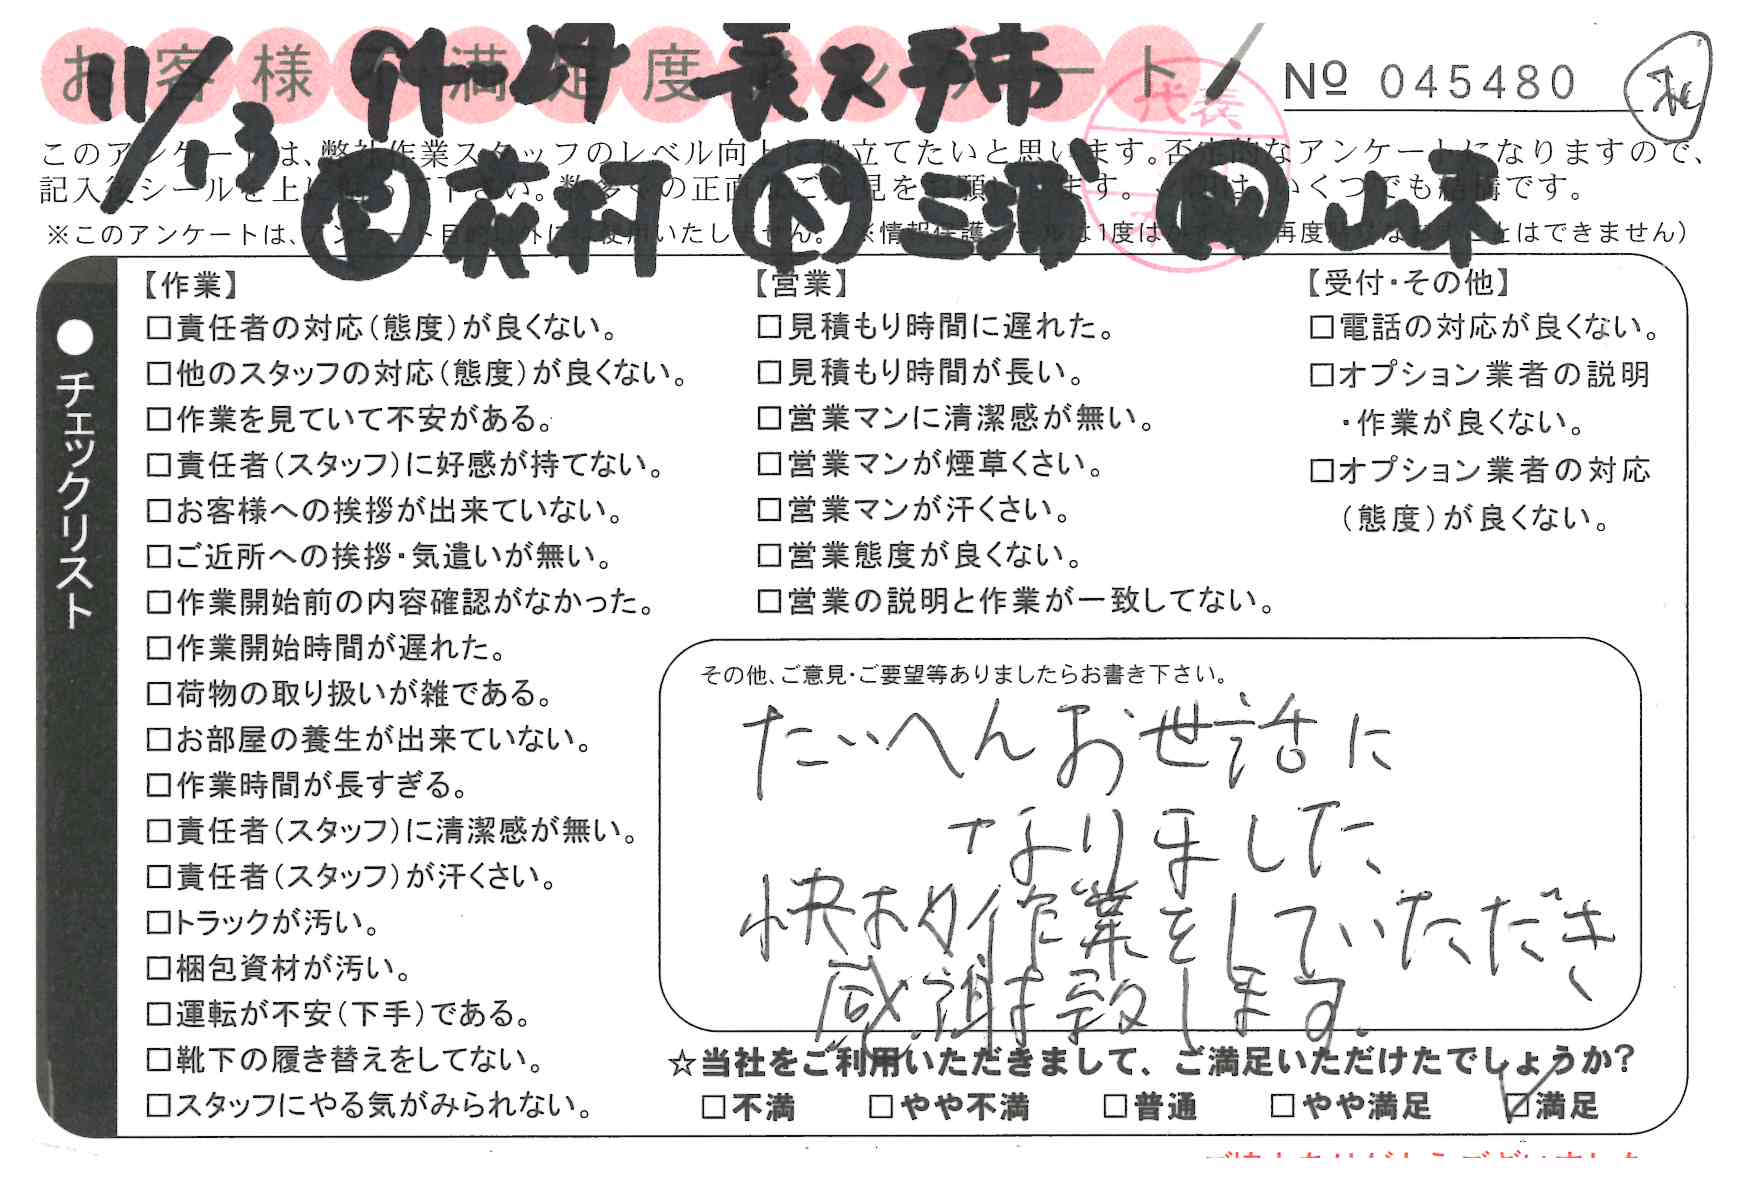 お客様の満足度アンケート
№ 045480
11/13
このアンケートは、弊社作業スタッフのレベル向上に役立てたいと思います。否定的なアンケートになりますので、
記入後シールを上に貼って下さい。数多くの正直なご意見をお願いします。
花村 三浦 山本
代表
【作業】
□責任者の対応(態度)が良くない。
□他のスタッフの対応(態度)が良くない。
□作業を見ていて不安がある。
□責任者(スタッフ)に好感が持てない。
□お客様への挨拶が出来ていない。
□ご近所への挨拶・気遣いが無い。
□作業開始前の内容確認がなかった。
□作業開始時間が遅れた。
□荷物の取り扱いが雑である。
□お部屋の養生が出来ていない。
□作業時間が長すぎる。
□責任者(スタッフ)に清潔感が無い。
□責任者(スタッフ)が汗くさい。
□トラックが汚い。
□梱包資材が汚い。
□運転が不安(下手)である。
□靴下の履き替えをしてない。
□スタッフにやる気がみられない。
【営業】
□見積もり時間に遅れた。
□見積もり時間が長い。
□営業マンに清潔感が無い。
□営業マンが煙草くさい。
□営業マンが汗くさい。
□営業態度が良くない。
□営業の説明と作業が一致してない。
【受付・その他】
□電話の対応が良くない。
□オプション業者の説明
・作業が良くない。
□オプション業者の対応
(態度)が良くない。
●チェックリスト
その他、ご意見・ご要望等ありましたらお書き下さい。
たいへんお世話に
なりました、
快よい作業をしていただき
感謝致します。
☆当社をご利用いただきまして、ご満足いただけたでしょうか?
□不満 □やや不満 □普通 □やや満足 ☑満足